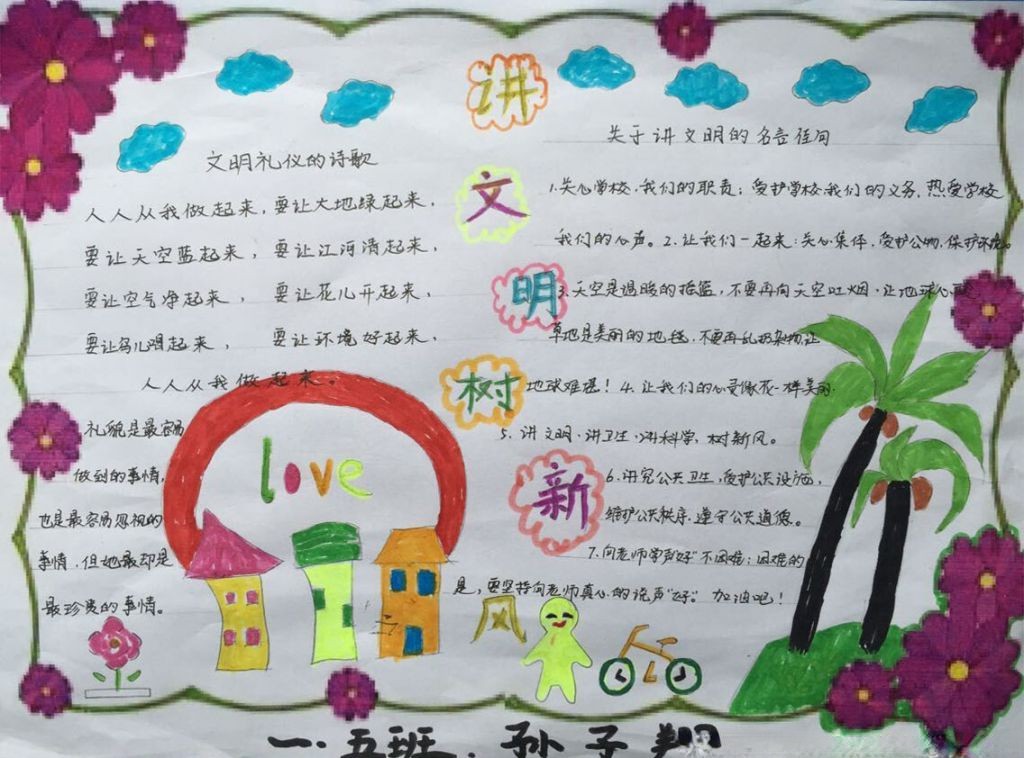 讲
文
明
树
新
风
文明礼仪的诗歌
人人从我做起来，要让大地绿起来，
要让天空蓝起来，要让江河清起来，
要让空气净起来，要让花儿开起来，
要让鸟儿唱起来，要让环境好起来，
人人从我做起来。
love
礼貌是最容易
做到的事情，
也是最容易忽视的
事情，但她最却是
最珍贵的事情。
关于讲文明的名言佳句
1.关心学校，我们的职责；爱护学校我们的义务，热爱学校
我们的心声。2.让我们一起来：关心集体，爱护公物，保护环境。
3.天空是温暖的摇篮，不要再向天空吐烟，让地球心
草地是美丽的地毯，不要再乱扔杂物，让
地球难堪！4.让我们的心灵像花一样美丽.
5.讲文明，讲卫生，讲科学，树新风。
6.讲究公共卫生，爱护公共设施，
维护公共秩序，遵守公共道德。
7.向老师学声"好"不困难；困难的
是，要坚持向老师真心的说声"好"。加油吧！
一.五班.孙子翔